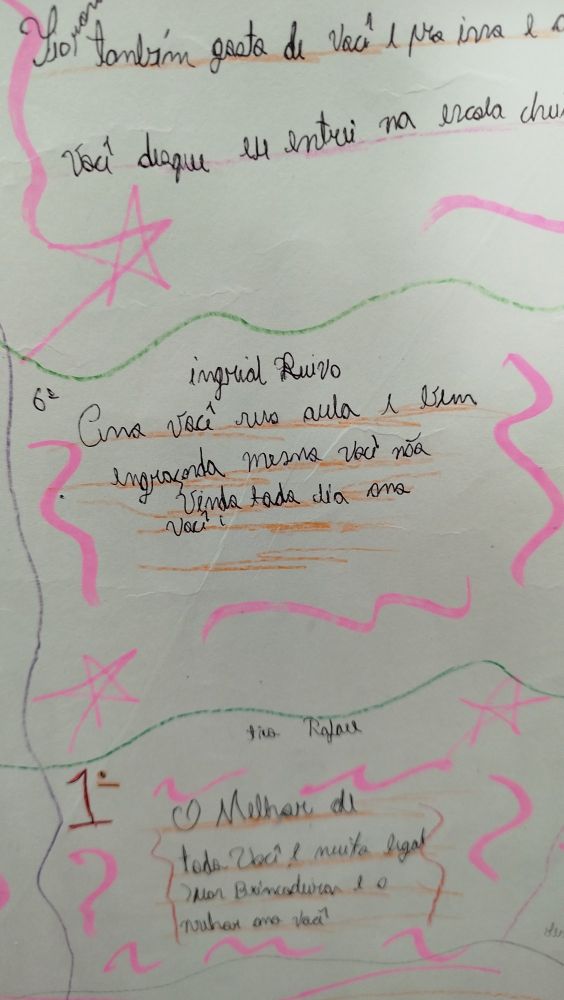 também gosta de você e pra isso e
Você disque eu entrei na escola
ingrial Ruivo
6º
Amo você sua aula e bem
engraçada mesmo você não
Vindo todo dia amo
você!
tia Rafael
1º
O Melhor de
todo Você e muito legal
suas Brincadeiras e o
melhor amo você